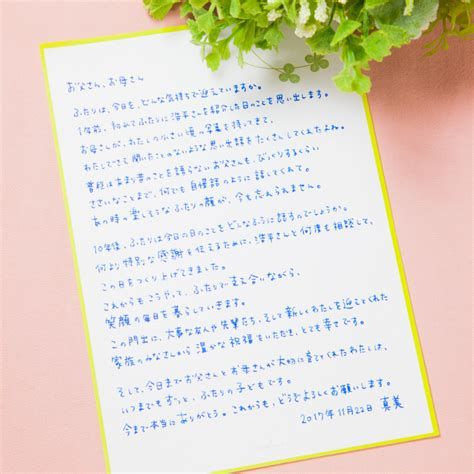 お父さん、お母さん
ふたりは、今日を、どんな気持ちで迎えていますか。
1年前、初めてふたりに浩平さんを紹介した日のことを思い出します。
お母さんが、わたしの小さい頃の写真を持ってきて、
わたしでさえ聞いたことのないような思い出話をたくさんしてくれたよね。
普段はあまり昔のことを語らないお父さんも、びっくりするくらい
ささいなことまで、何でも自慢話のように話してくれて。
あの時の楽しそうなふたりの顔が、今も忘れられません。
10年後、ふたりは今日の日のことをどんなふうに話すのでしょうか。
何より特別な感謝を伝えるために、浩平さんと何度も相談して、
この日をつくり上げてきました。
これからもこうやって、ふたりで支え合いながら、
笑顔の毎日を暮らしていきます。
この門出に、大事な友人や先輩たち、そして新しくわたしを迎えてくれた
家族のみなさんから温かな祝福をいただき、とても幸せです。
そして、今日までお父さんとお母さんが大切に育ててくれたわたしは、
いつまでもずっと、ふたりの子どもです。
今まで本当にありがとう。これからも、どうぞよろしくお願いします。
2017年11月22日 真美